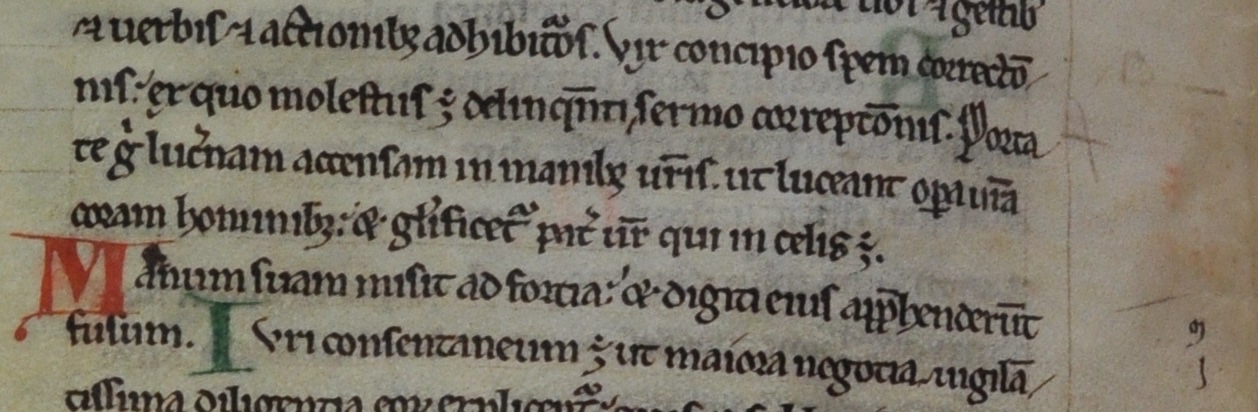 ⁊ gestib᷒
⁊ uerbis ⁊ actionibꝫ adhibitos. Vix concipio spem correctō
nis: ex quo molestus ÷ delinqn̄ti, sermo correptōnis. Porta
te g̊ luc̉nam accensam in manibꝫ ur̄is. ut luceant oꝑa ur̄a
coram hominibꝫ: & glificet᷑ pat̉ ur̄ qui in celis ÷.
Manum suam misit ad fortia: & digiti eius app̄henderūt
fusum. Iuri consentaneum ÷ ut maiora negotia uigilā
tissima diligentia